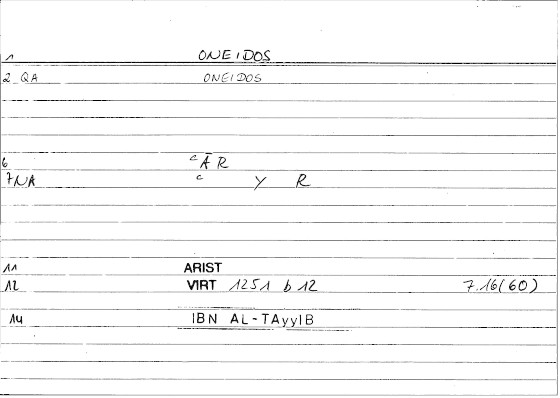 1 ONEIDOS
2 QA ONEIDOS
6 ʿĀR
7 NA ʿ Y R
11 ARIST
12 VIRT 1251 b 12 7.16(60)
14 IBN AL-TAyyIB